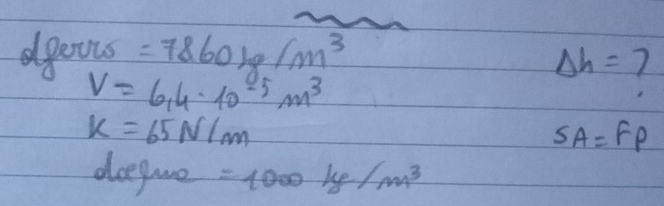 dferro = 7860 kg/m³
V = 6,4 · 10⁻⁵ m³
K = 65 N/m
dacqua = 1000 kg/m³
Δh = ?
SA = FP